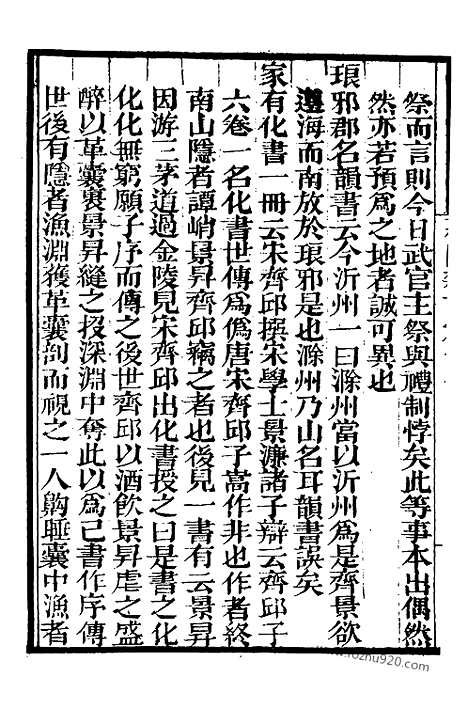 祭而言則今日武官主祭與禮制悖矣此等事本出偶然
然亦若預爲之地者誠可異也
琅邪郡名韻書云今沂州一曰滁州當以沂州爲是齊景欲
遵海而南放於琅邪是也滁州乃山名耳韻書誤矣
家有化書一冊云宋齊邱撰宋學士景濂諸子辯云齊邱子
六卷一名化書世傳爲僞唐宋齊邱子嵩作非也作者終
南山隱者譚峭景昇齊邱竊之者也後見一書有云景昇
因游三茅道過金陵見宋齊邱出化書授之曰是書之化
化化無窮願子序而傳之後世齊邱以酒飲景昇虐之盛
醉以革囊裹景昇縫之投深淵中奪此以爲己書作序傳
世後有隱者漁淵獲革囊剖而視之一人齁睡囊中漁者
www.fozhu920.com